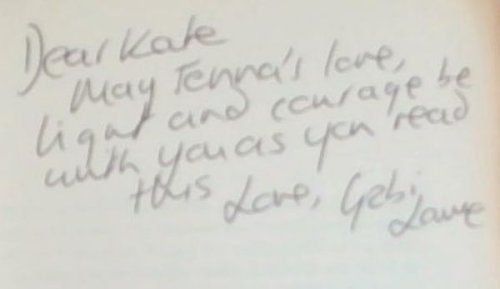 Dear Kate
May Tenna's love,
light and courage be
with you as you read
this Love, Gebi,